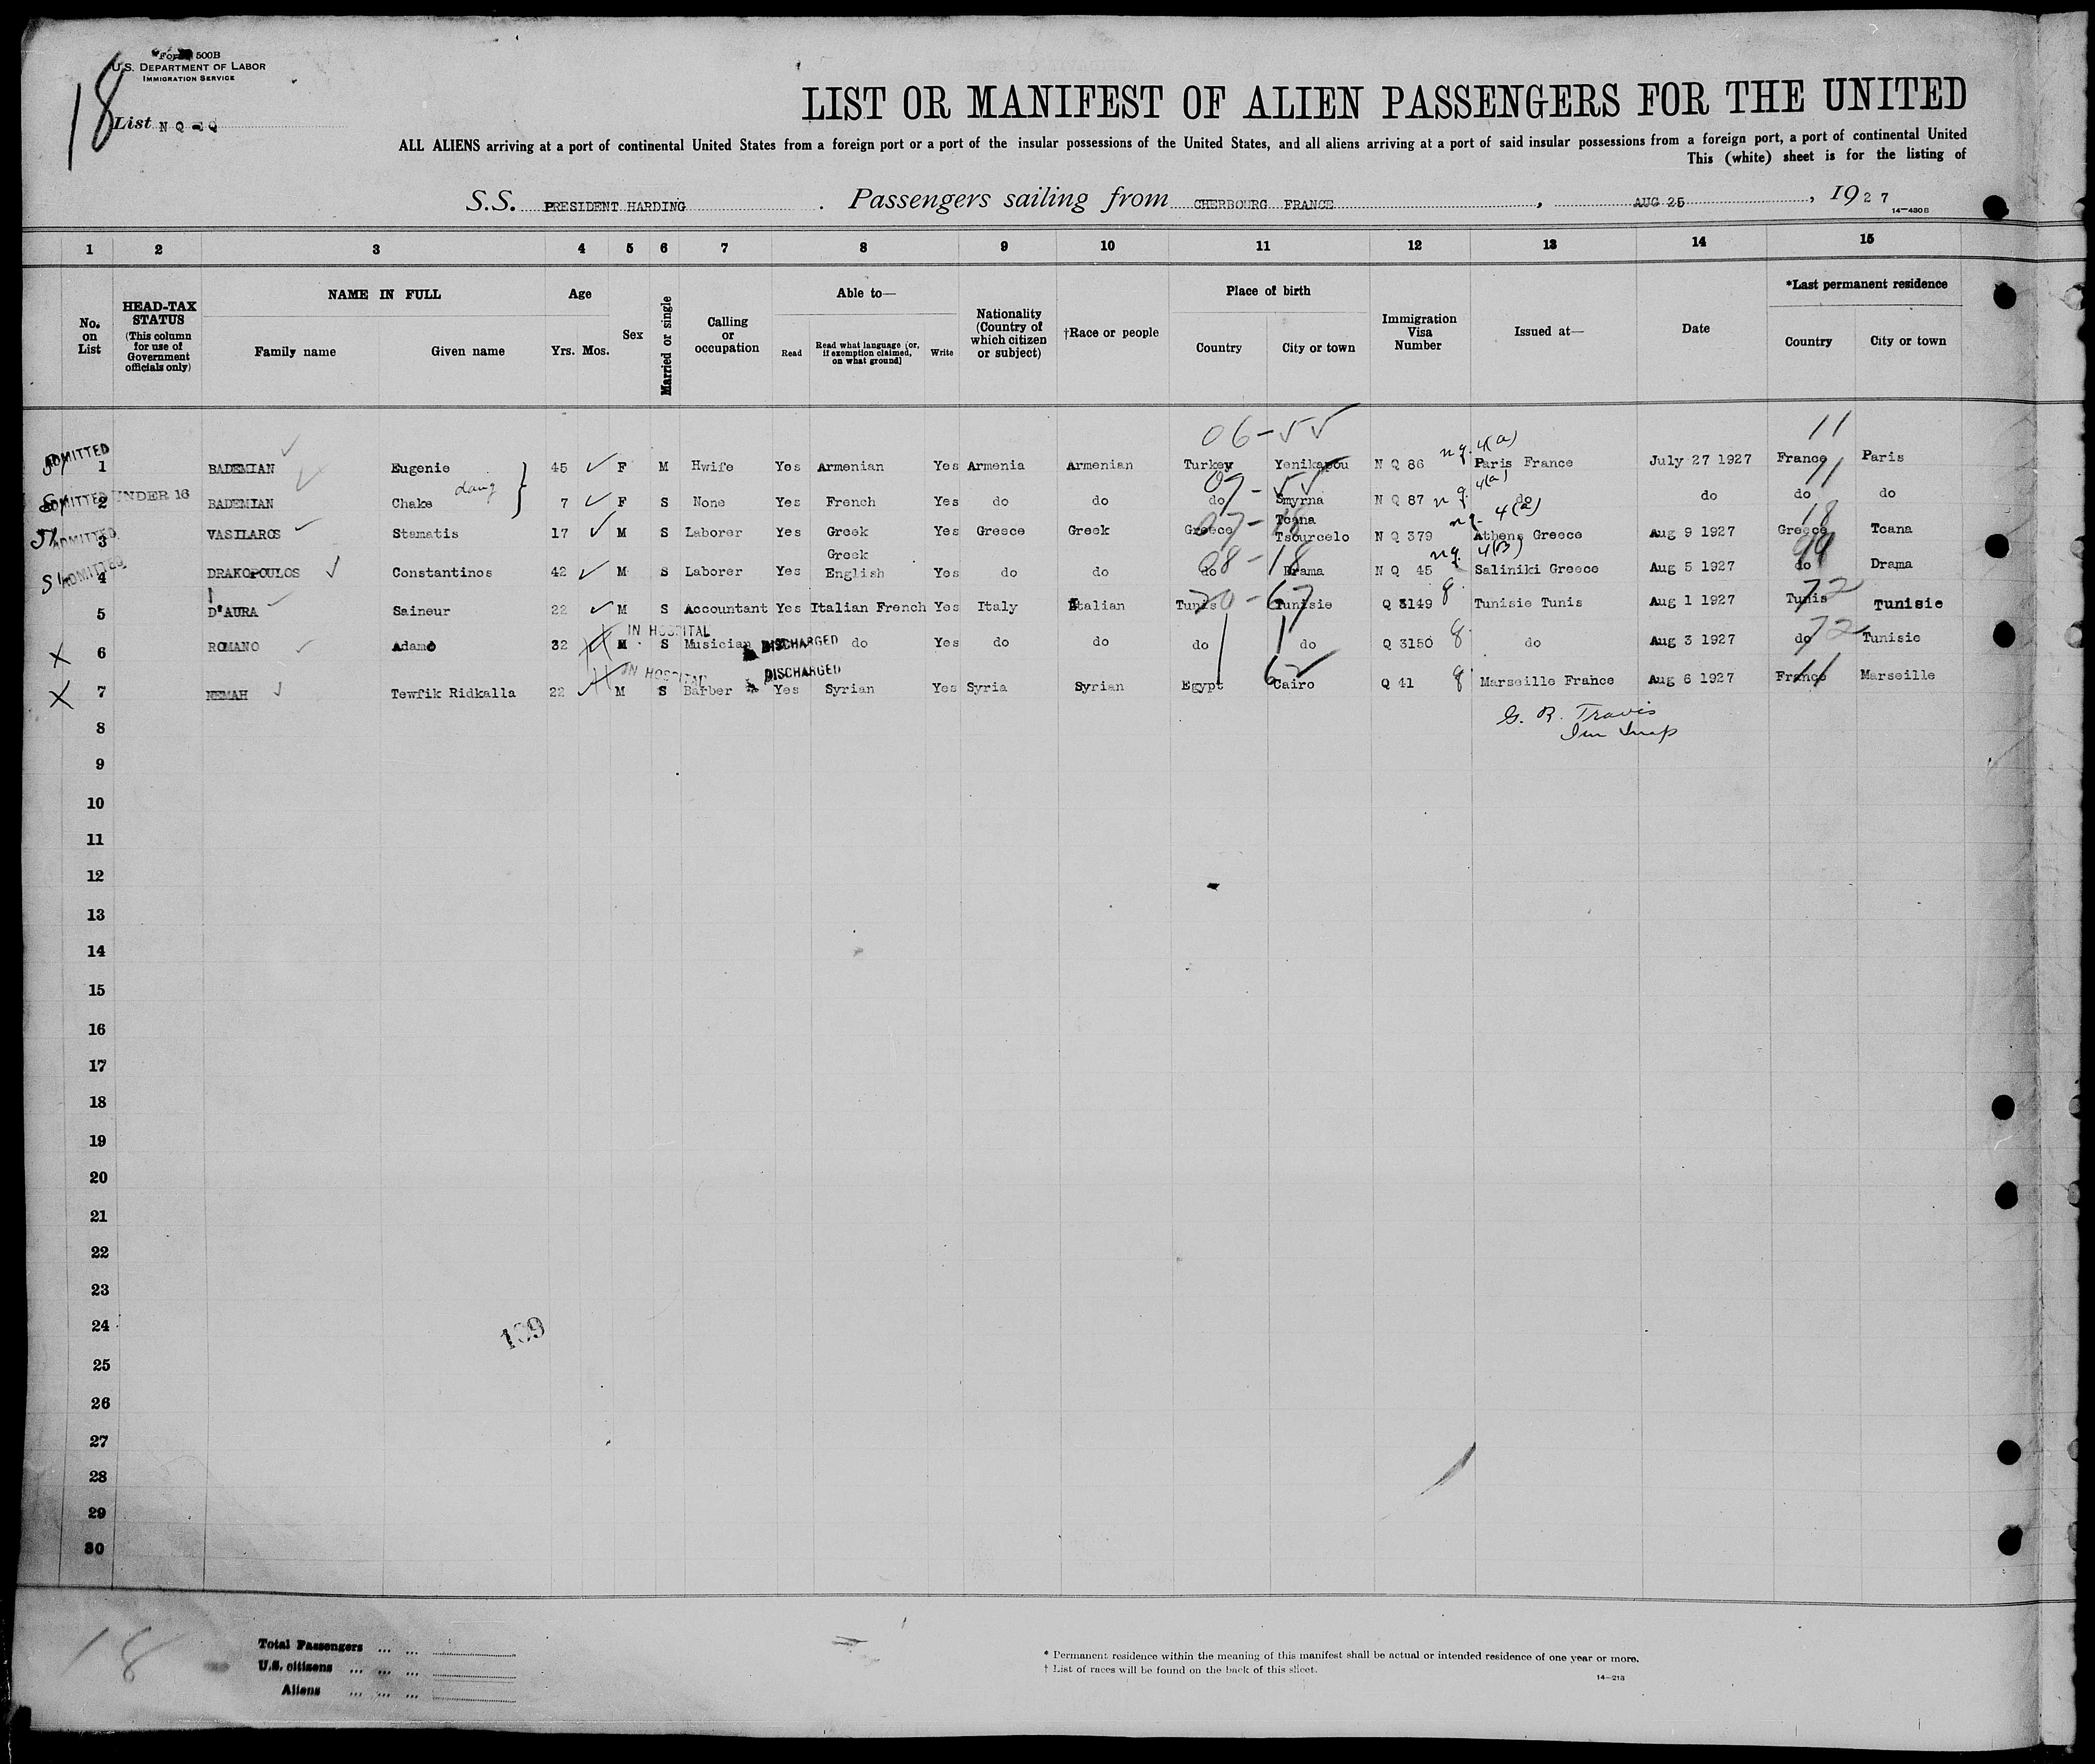 Form 500B
U.S. DEPARTMENT OF LABOR
IMMIGRATION SERVICE
18
List N Q - Q
LIST OR MANIFEST OF ALIEN PASSENGERS FOR THE UNITED
ALL ALIENS arriving at a port of continental United States from a foreign port or a port of the insular possessions of the United States, and all aliens arriving at a port of said insular possessions from a foreign port, a port of continental United
This (white) sheet is for the listing of
S.S. PRESIDENT HARDING . Passengers sailing from CHERBOURG FRANCE , AUG 25 , 1927
14—430B
1 2 3 4 5 6 7 8 9 10 11 12 13 14 15
No. on List
HEAD-TAX STATUS (This column for use of Government officials only)
NAME IN FULL
Family name Given name
Age
Yrs. Mos.
Sex
Married or single
Calling or occupation
Able to—
Read Read what language [or, if exemption claimed, on what ground] Write
Nationality (Country of which citizen or subject)
†Race or people
Place of birth
Country City or town
Immigration Visa Number
Issued at—
Date
*Last permanent residence
Country City or town
06-55 11
ADMITTED 1 BADEMIAN Eugenie 45 F M Hwife Yes Armenian Yes Armenia Armenian Turkey Yenikapou N Q 86 nq. 4(a) Paris France July 27 1927 France Paris
07-55 11
ADMITTED 2 UNDER 16 BADEMIAN Chake daug 7 F S None Yes French Yes do do do Smyrna N Q 87 nq. 4(a) do do do do
ADMITTED 3 VASILAROS Stematis 17 M S Laborer Yes Greek Yes Greece Greek Greece Tcana Tsourcelo N Q 379 nq- 4(a) Athens Greece Aug 9 1927 Greece 18 Tcana
ADMITTED 4 DRAKOPOULOS Constantinos 42 M S Laborer Yes Greek English Yes do do do 08-18 Drama N Q 45 nq. 4(B) Saliniki Greece Aug 5 1927 do 99 Drama
5 D'AURA Saineur 22 M S Accountant Yes Italian French Yes Italy Italian Tunis 70-67 Tunisie Q 3149 q. Tunisie Tunis Aug 1 1927 Tunis 72 Tunisie
IN HOSPITAL
6 ROMANO Adamo 32 M S Musician DISCHARGED do Yes do do do do Q 3150 q. do Aug 3 1927 do 72 Tunisie
IN HOSPITAL DISCHARGED
7 NEMAH Tewfik Ridkalla 22 M S Barber Yes Syrian Yes Syria Syrian Egypt 62 Cairo Q 41 q. Marseille France Aug 6 1927 France 11 Marseille
8 G. R. Travis
Im Insp
9
10
11
12
13
14
15
16
17
18
19
20
21
22
23
24
25
26
27
28
29
30
18
Total Passengers ... ...
U.S. citizens ... ... ...
Aliens ... ... ...
* Permanent residence within the meaning of this manifest shall be actual or intended residence of one year or more.
† List of races will be found on the back of this sheet.
14—213